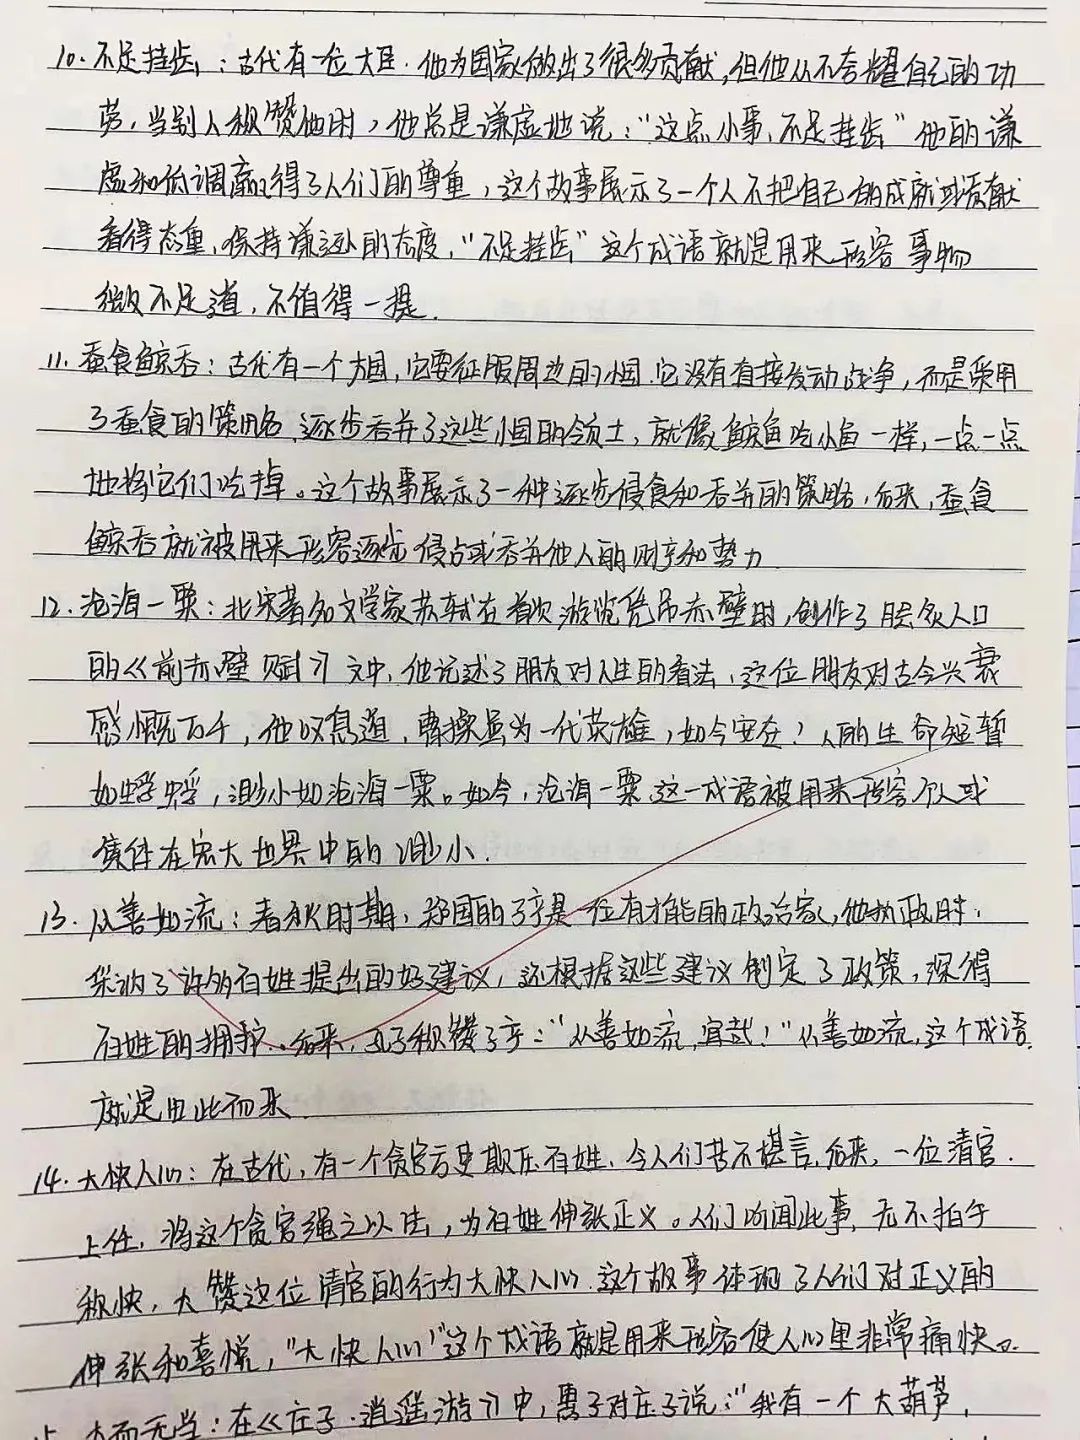 10. 不足挂齿：古代有一位大臣.他为国家做出了很多贡献,但他从不夸耀自己的功
劳,当别人称赞他时,他总是谦虚地说："这点小事,不足挂齿"他的谦
虚和低调赢得了人们的尊重,这个故事展示了一个人不把自己的成就或贡献
看得态重,保持谦逊的态度,"不足挂齿"这个成语就是用来形容事物
微不足道,不值得一提.
11. 蚕食鲸吞：古代有一个大国,它要征服周边的小国.它没有直接发动战争,而是采用
了蚕食的策略,逐步吞并了这些小国的领土,就像鲸鱼吃小鱼一样,一点一点
地将它们吃掉。这个故事展示了一种逐步侵食和吞并的策略,后来,蚕食
鲸吞就被用来形容逐步侵占或吞并他人的财产和势力
12. 沧海一粟：北宋著名文学家苏轼在首次游览凭吊赤壁时,创作了脍炙人口
的《前赤壁赋》文中,他记述了朋友对人生的看法,这位朋友对古今兴衰
感慨万千,他叹息道,曹操虽为一代英雄,如今安在?人的生命短暂
如蜉蝣,渺小如沧海一粟。如今,沧海一粟这一成语被用来形容个人或
集体在宏大世界中的渺小.
13. 从善如流：春秋时期,郑国的子产是一位有才能的政治家,他执政时,
采纳了许多百姓提出的好建议,还根据这些建议制定了政策,深得
百姓的拥护..后来,孔子称赞子产："从善如流,宜哉!"从善如流,这个成语
就是由此而来
14. 大快人心：在古代,有一个贪官污吏欺压百姓,令人们苦不堪言.后来,一位清官
上任,将这个贪官绳之以法,为百姓伸张正义。人们听闻此事,无不拍手
称快,大赞这位清官的行为大快人心.这个故事体现了人们对正义的
伸张和喜悦,"大快人心"这个成语就是用来形容使人心里非常痛快。
大而无当：在《庄子·逍遥游》中,惠子对庄子说："我有一个大葫芦,